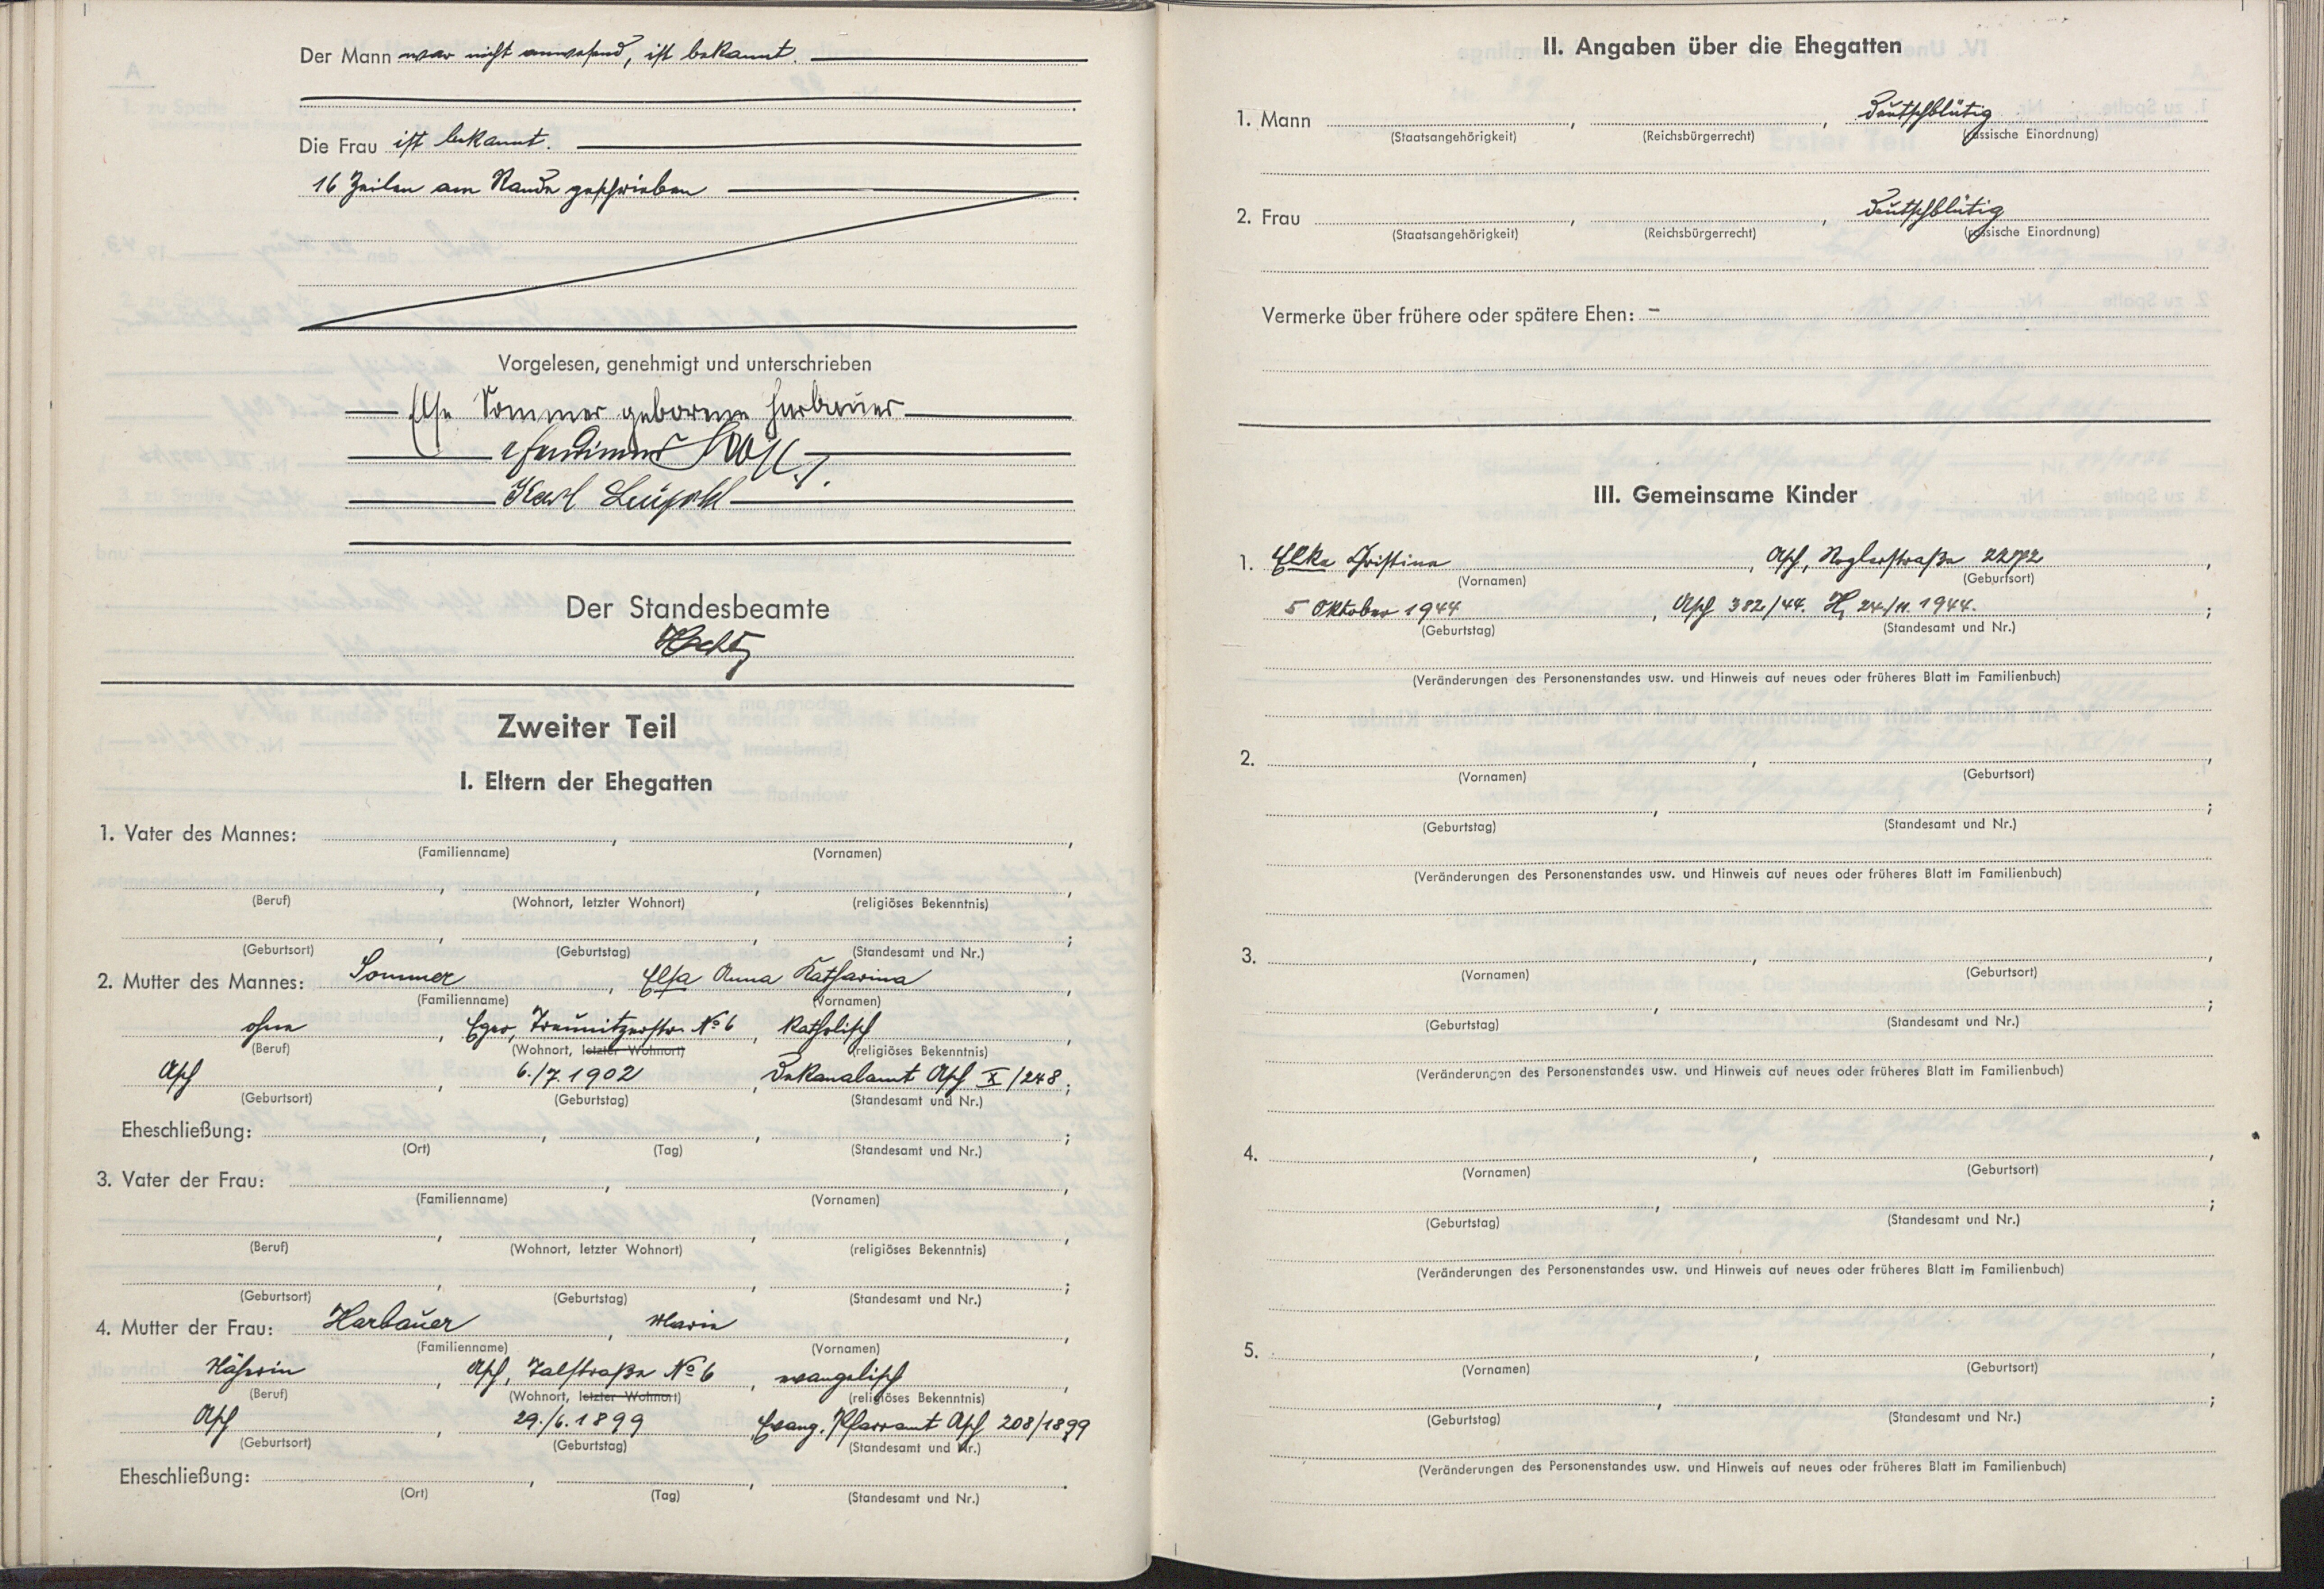 Der Mann war nicht anwesend, ist bekannt.
Die Frau ist bekannt.
16 Zeilen am Rande geschrieben
Vorgelesen, genehmigt und unterschrieben
Else Sommer geborene Harbauer
Karl Leupold
Der Standesbeamte
Zweiter Teil
I. Eltern der Ehegatten
1. Vater des Mannes: , ,
(Familienname) (Vornamen)
(Beruf) (Wohnort, letzter Wohnort) (religiöses Bekenntnis)
(Geburtsort) (Geburtstag) (Standesamt und Nr.)
2. Mutter des Mannes: Sommer, Elsa Anna Katharina,
(Familienname) (Vornamen)
ohne, Eger, Nº 6, katholisch,
(Beruf) (Wohnort, letzter Wohnort) (religiöses Bekenntnis)
Asch, 6./7. 1902, Dekanalamt Asch X/248;
(Geburtsort) (Geburtstag) (Standesamt und Nr.)
Eheschließung: , , ;
(Ort) (Tag) (Standesamt und Nr.)
3. Vater der Frau: , ,
(Familienname) (Vornamen)
(Beruf) (Wohnort, letzter Wohnort) (religiöses Bekenntnis)
(Geburtsort) (Geburtstag) (Standesamt und Nr.)
4. Mutter der Frau: Harbauer, Marie,
(Familienname) (Vornamen)
Näherin, Asch, Talstraße Nº 6, evangelisch,
(Beruf) (Wohnort, letzter Wohnort) (religiöses Bekenntnis)
Asch, 29./6. 1899, Evang. Pfarramt Asch 208/1899
(Geburtsort) (Geburtstag) (Standesamt und Nr.)
Eheschließung: , , .
(Ort) (Tag) (Standesamt und Nr.)
II. Angaben über die Ehegatten
1. Mann , , Deutschblütig
(Staatsangehörigkeit) (Reichsbürgerrecht) (rassische Einordnung)
2. Frau , , Deutschblütig
(Staatsangehörigkeit) (Reichsbürgerrecht) (rassische Einordnung)
Vermerke über frühere oder spätere Ehen: -
III. Gemeinsame Kinder
1. Elke Christine, Asch,
(Vornamen) (Geburtsort)
5 Oktober 1944, Asch 382/44. H, 24./11. 1944. ;
(Geburtstag) (Standesamt und Nr.)
(Veränderungen des Personenstandes usw. und Hinweis auf neues oder früheres Blatt im Familienbuch)
2. , ,
(Vornamen) (Geburtsort)
(Geburtstag) (Standesamt und Nr.)
(Veränderungen des Personenstandes usw. und Hinweis auf neues oder früheres Blatt im Familienbuch)
3. , ,
(Vornamen) (Geburtsort)
(Geburtstag) (Standesamt und Nr.)
(Veränderungen des Personenstandes usw. und Hinweis auf neues oder früheres Blatt im Familienbuch)
4. , ,
(Vornamen) (Geburtsort)
(Geburtstag) (Standesamt und Nr.)
(Veränderungen des Personenstandes usw. und Hinweis auf neues oder früheres Blatt im Familienbuch)
5. , ,
(Vornamen) (Geburtsort)
(Geburtstag) (Standesamt und Nr.)
(Veränderungen des Personenstandes usw. und Hinweis auf neues oder früheres Blatt im Familienbuch)